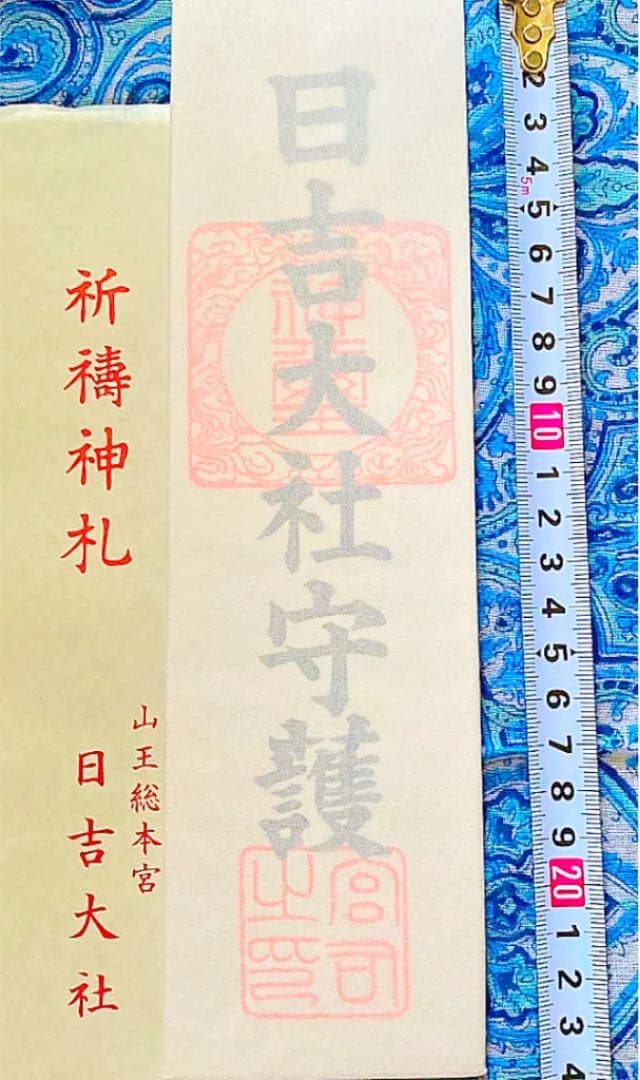 日吉大社守護
宮司之印
祈禱神札
山王総本宮
日吉大社
2 3 4 5 6 7 8 9 10 1 2 3 4 5 6 7 8 9 20 1 2 3 4
5m